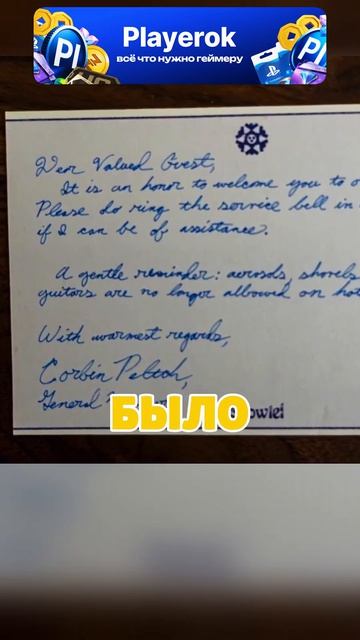 Playerok
всё что нужно геймеру
Dear Valued Guest,
It is an honor to welcome you to
Please do ring the service bell in
if I can be of assistance.
A gentle reminder: aerosols, shovels
guitars are no longer allowed on
With warmest regards,
Corbin
General
БЫЛО